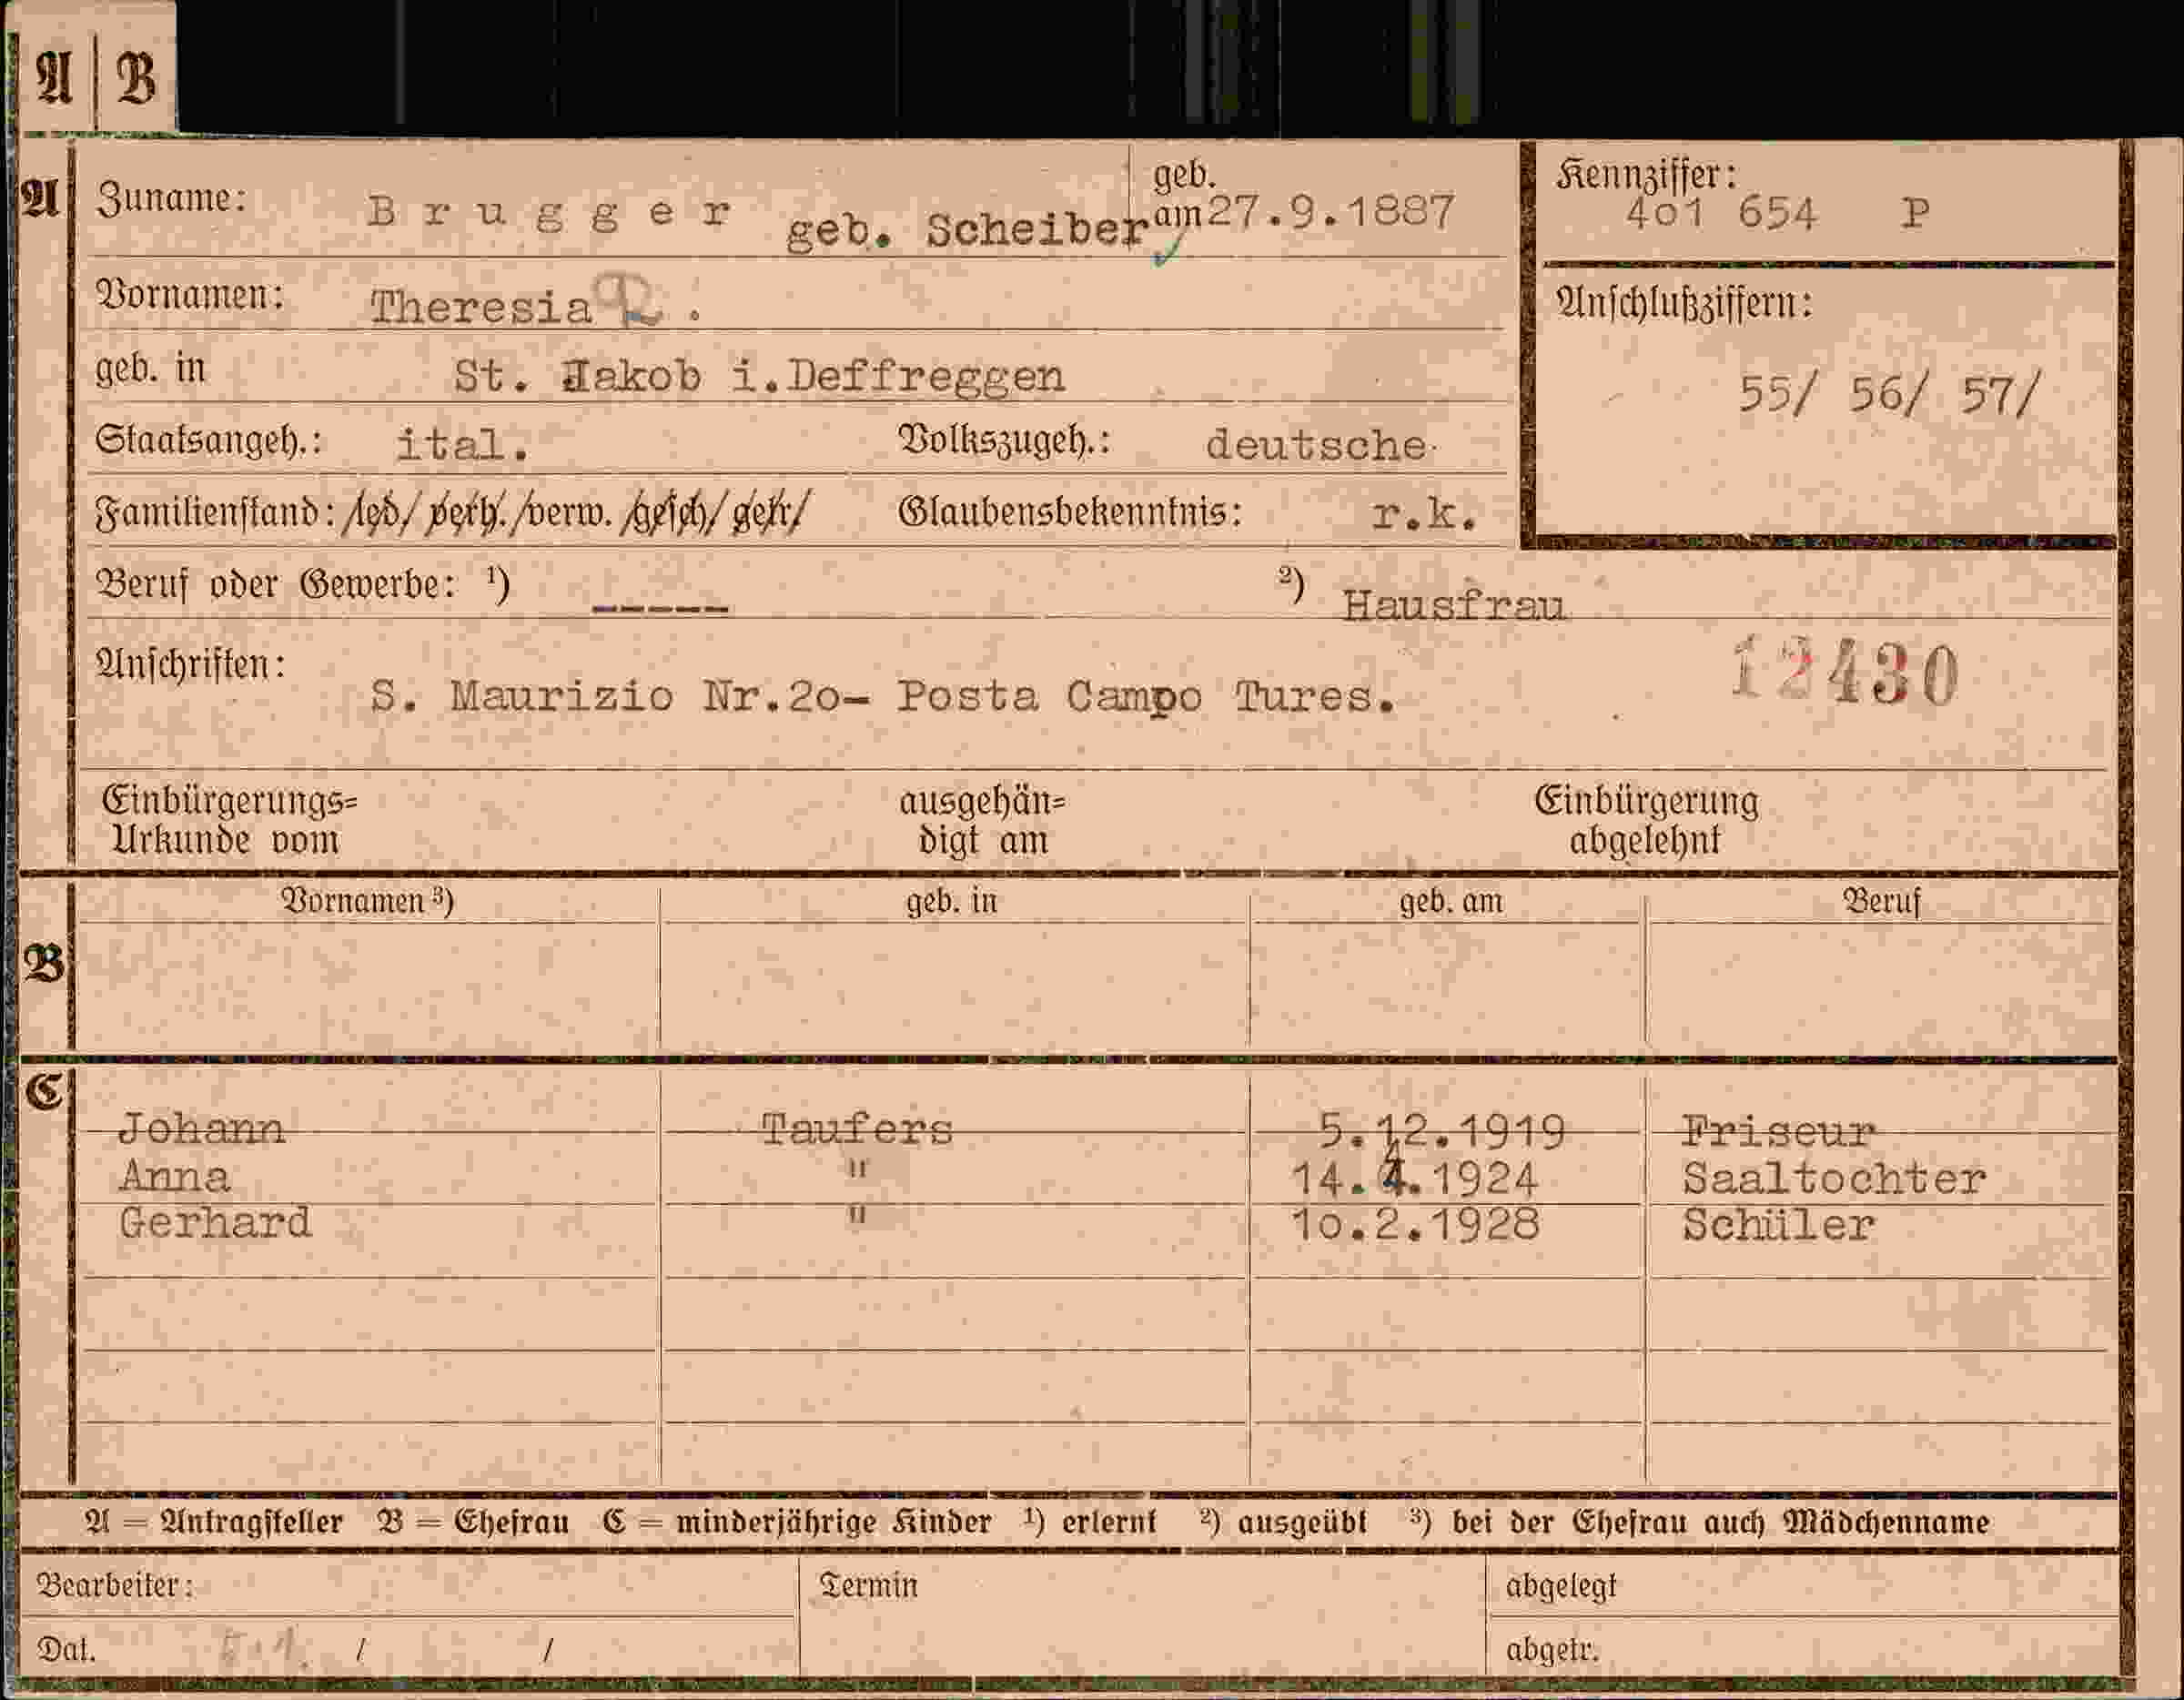 A | B
A Zuname: Brugger geb. Scheiber geb. am 27.9.1887 Kennziffer: 401 654 P
Vornamen: Theresia
Anschlußziffern:
geb. in St. Jakob i.Deffreggen
55/ 56/ 57/
Staatsangeh.: ital. Volkszugeh.: deutsche
Familienstand: /led/ verh./verw./gesch/ getr/ Glaubensbekenntnis: r.k.
Beruf oder Gewerbe: ¹) ----- ²) Hausfrau
Anschriften:
12430
S. Maurizio Nr.2o- Posta Campo Tures.
Einbürgerungs= ausgehän= Einbürgerung
Urkunde vom digt am abgelehnt
Vornamen ³) geb. in geb. am Beruf
B
C
Johann Taufers 5.12.1919 Friseur
Anna " 14.4.1924 Saaltochter
Gerhard " 1o.2.1928 Schüler
A = Antragsteller B = Ehefrau C = minderjährige Kinder ¹) erlernt ²) ausgeübt ³) bei der Ehefrau auch Mädchenname
Bearbeiter: Termin abgelegt
Dat. / / abgetr.